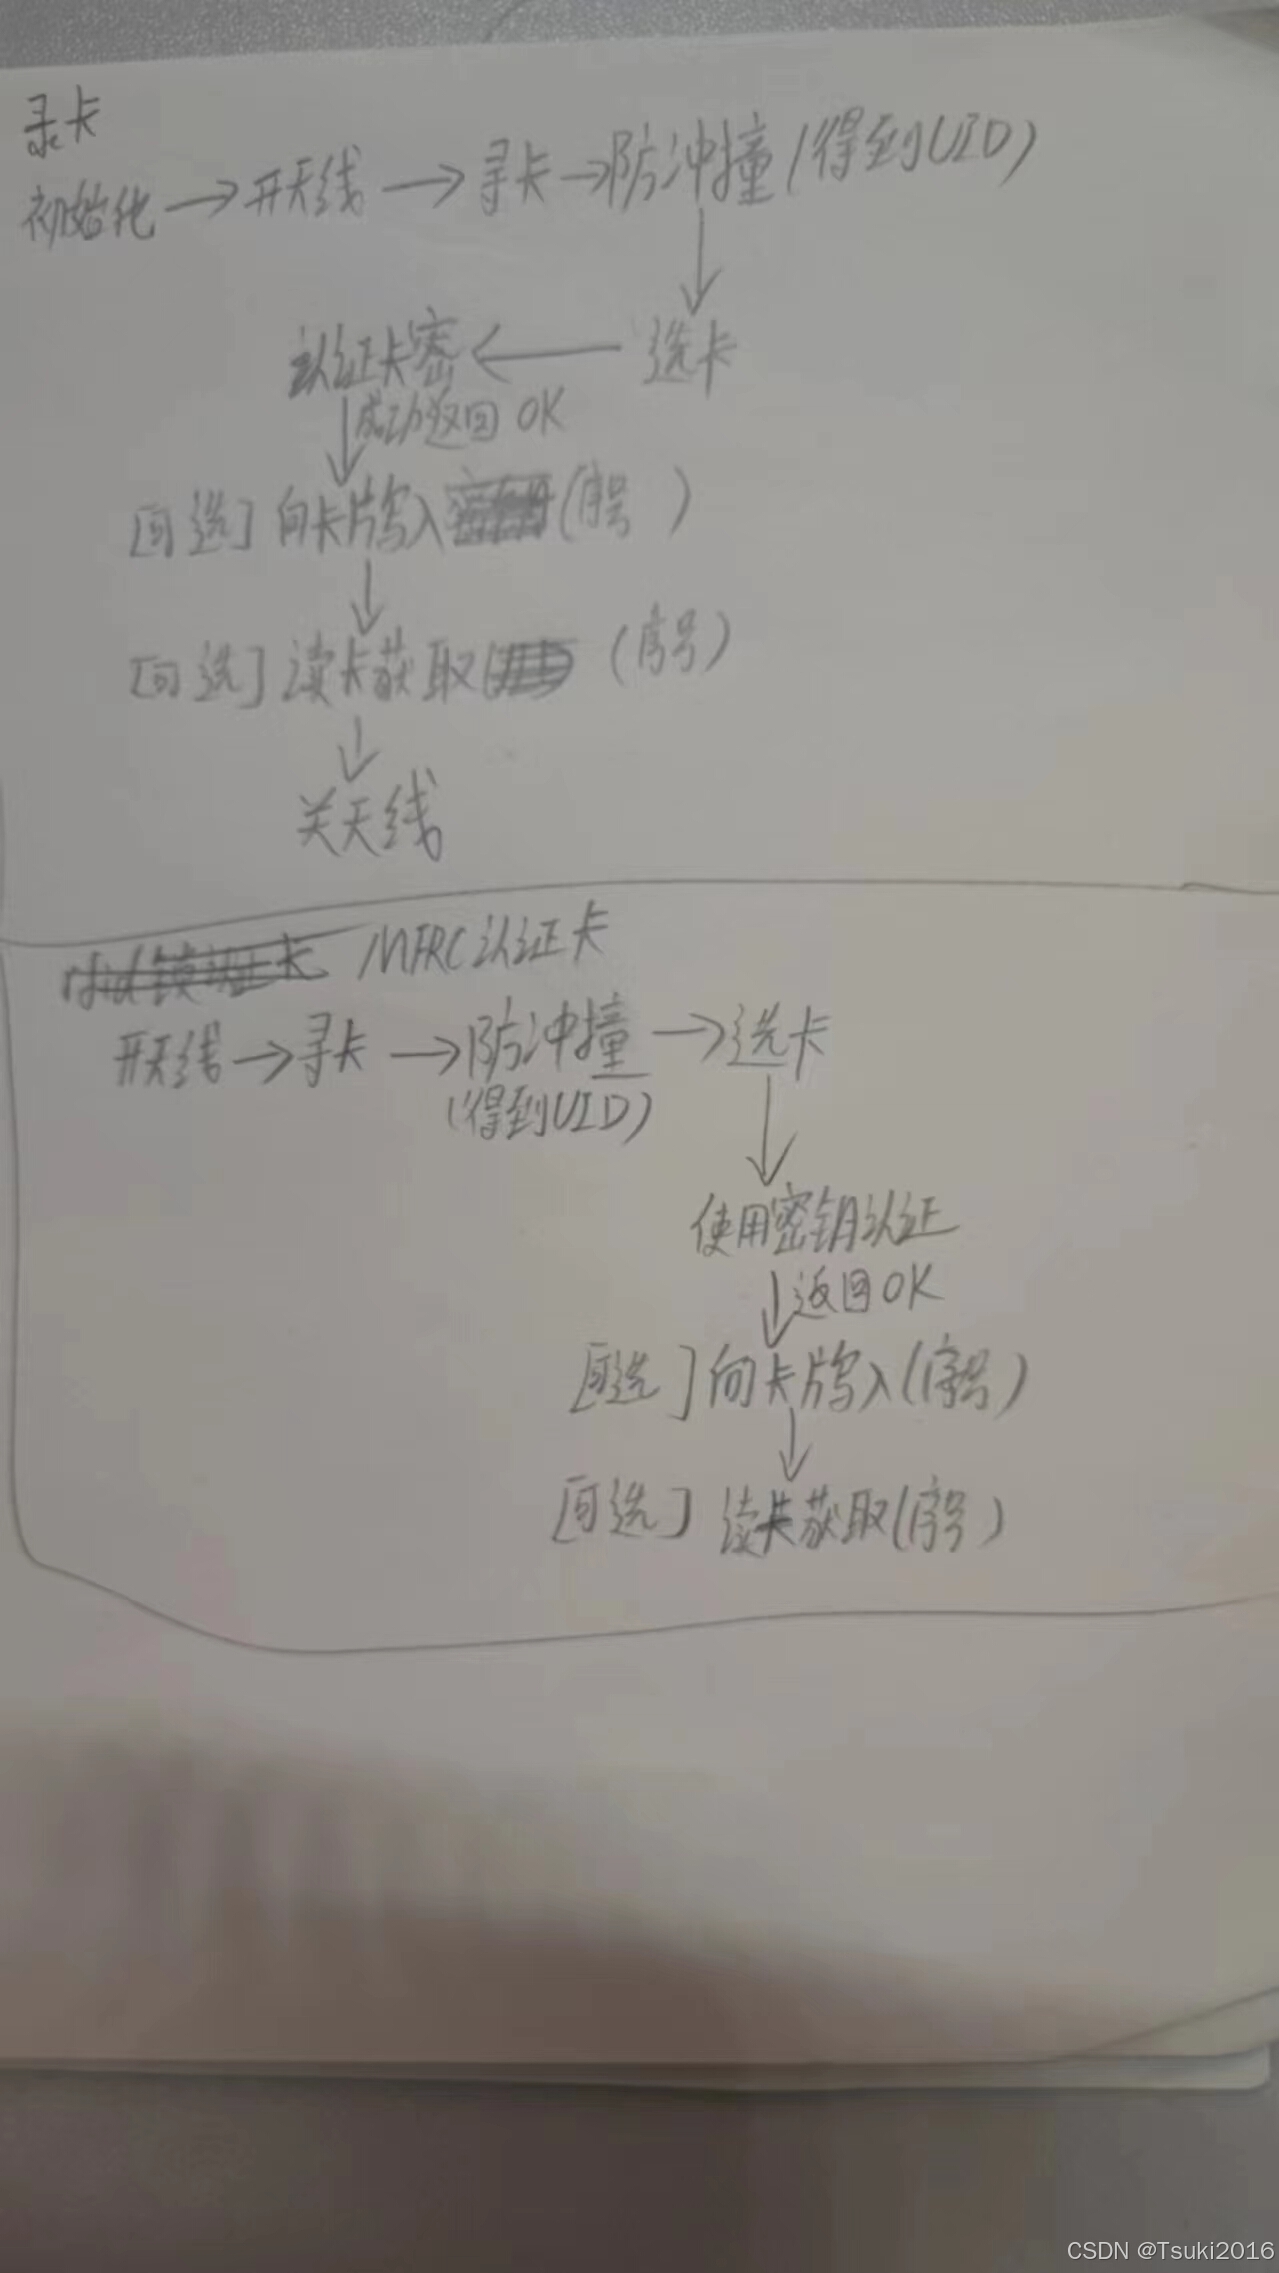 录卡
初始化→开天线→寻卡→防冲撞(得到UID)
认证卡密←选卡
成功返回OK
[可选]向卡片写入(序号)
[可选]读卡获取(序号)
关天线
MFRC认证卡
开天线→寻卡→防冲撞→选卡
(得到UID)
使用密钥认证
返回OK
[可选]向卡片写入(序号)
[可选]读卡获取(序号)
CSDN @Tsuki2016